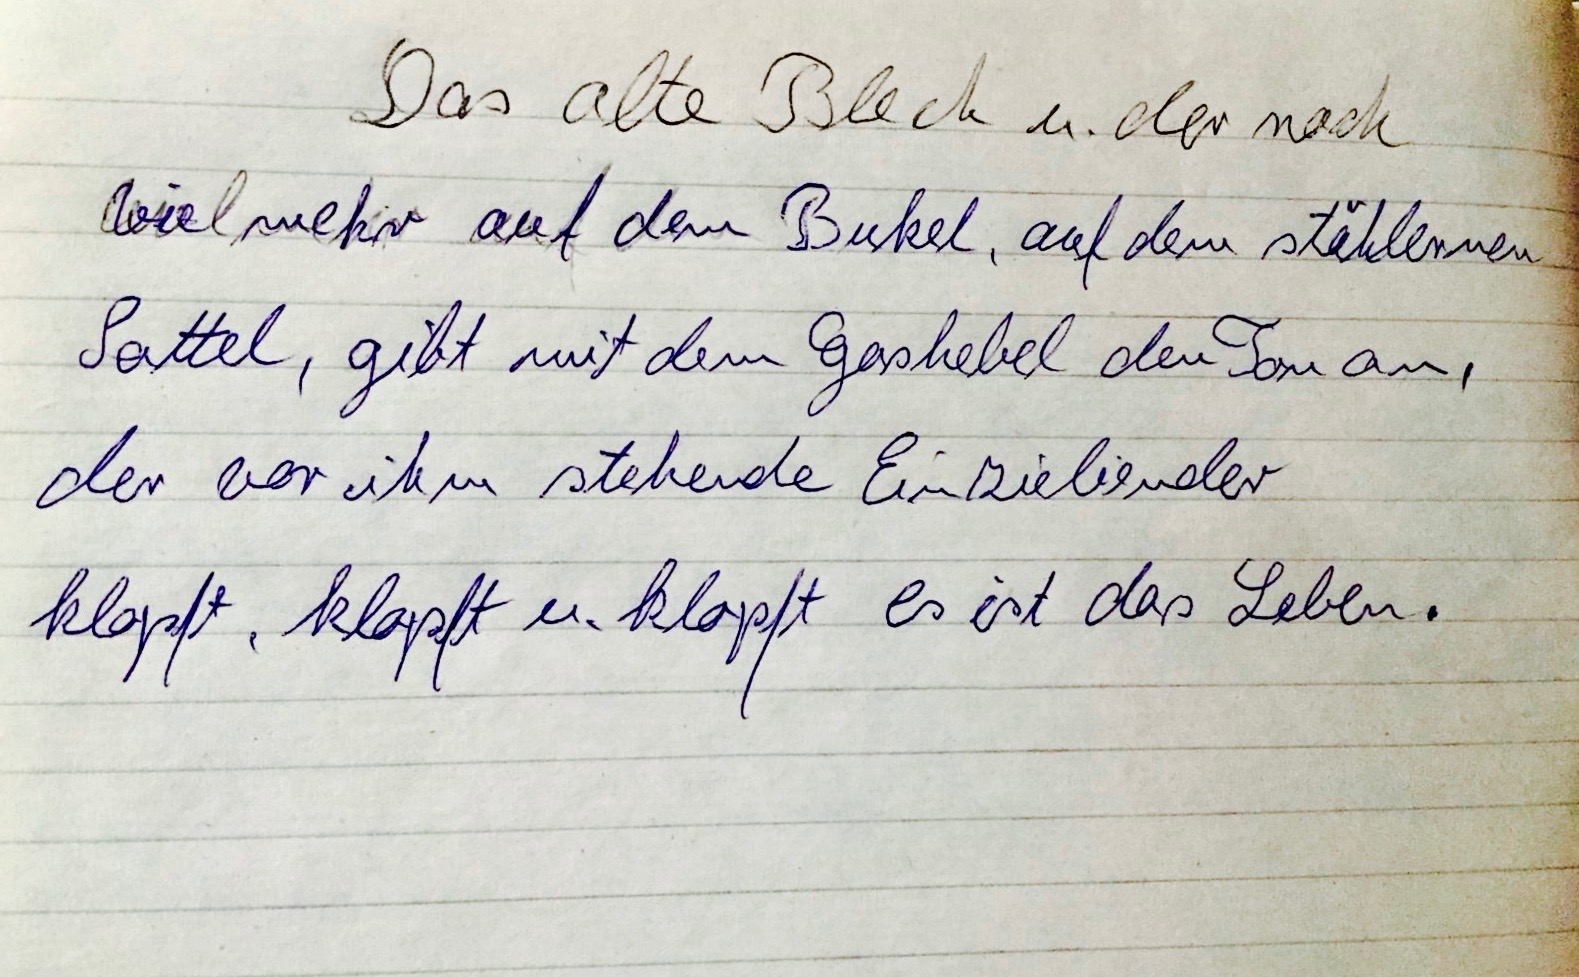 Das alte Blech u. der noch
viel mehr auf dem Bukel, auf dem stählernen
Sattel, gibt mit dem Gashebel den Ton an,
der vor ihm stehende Einziebiender
klopft, klopft u. klopft es ist das Leben.